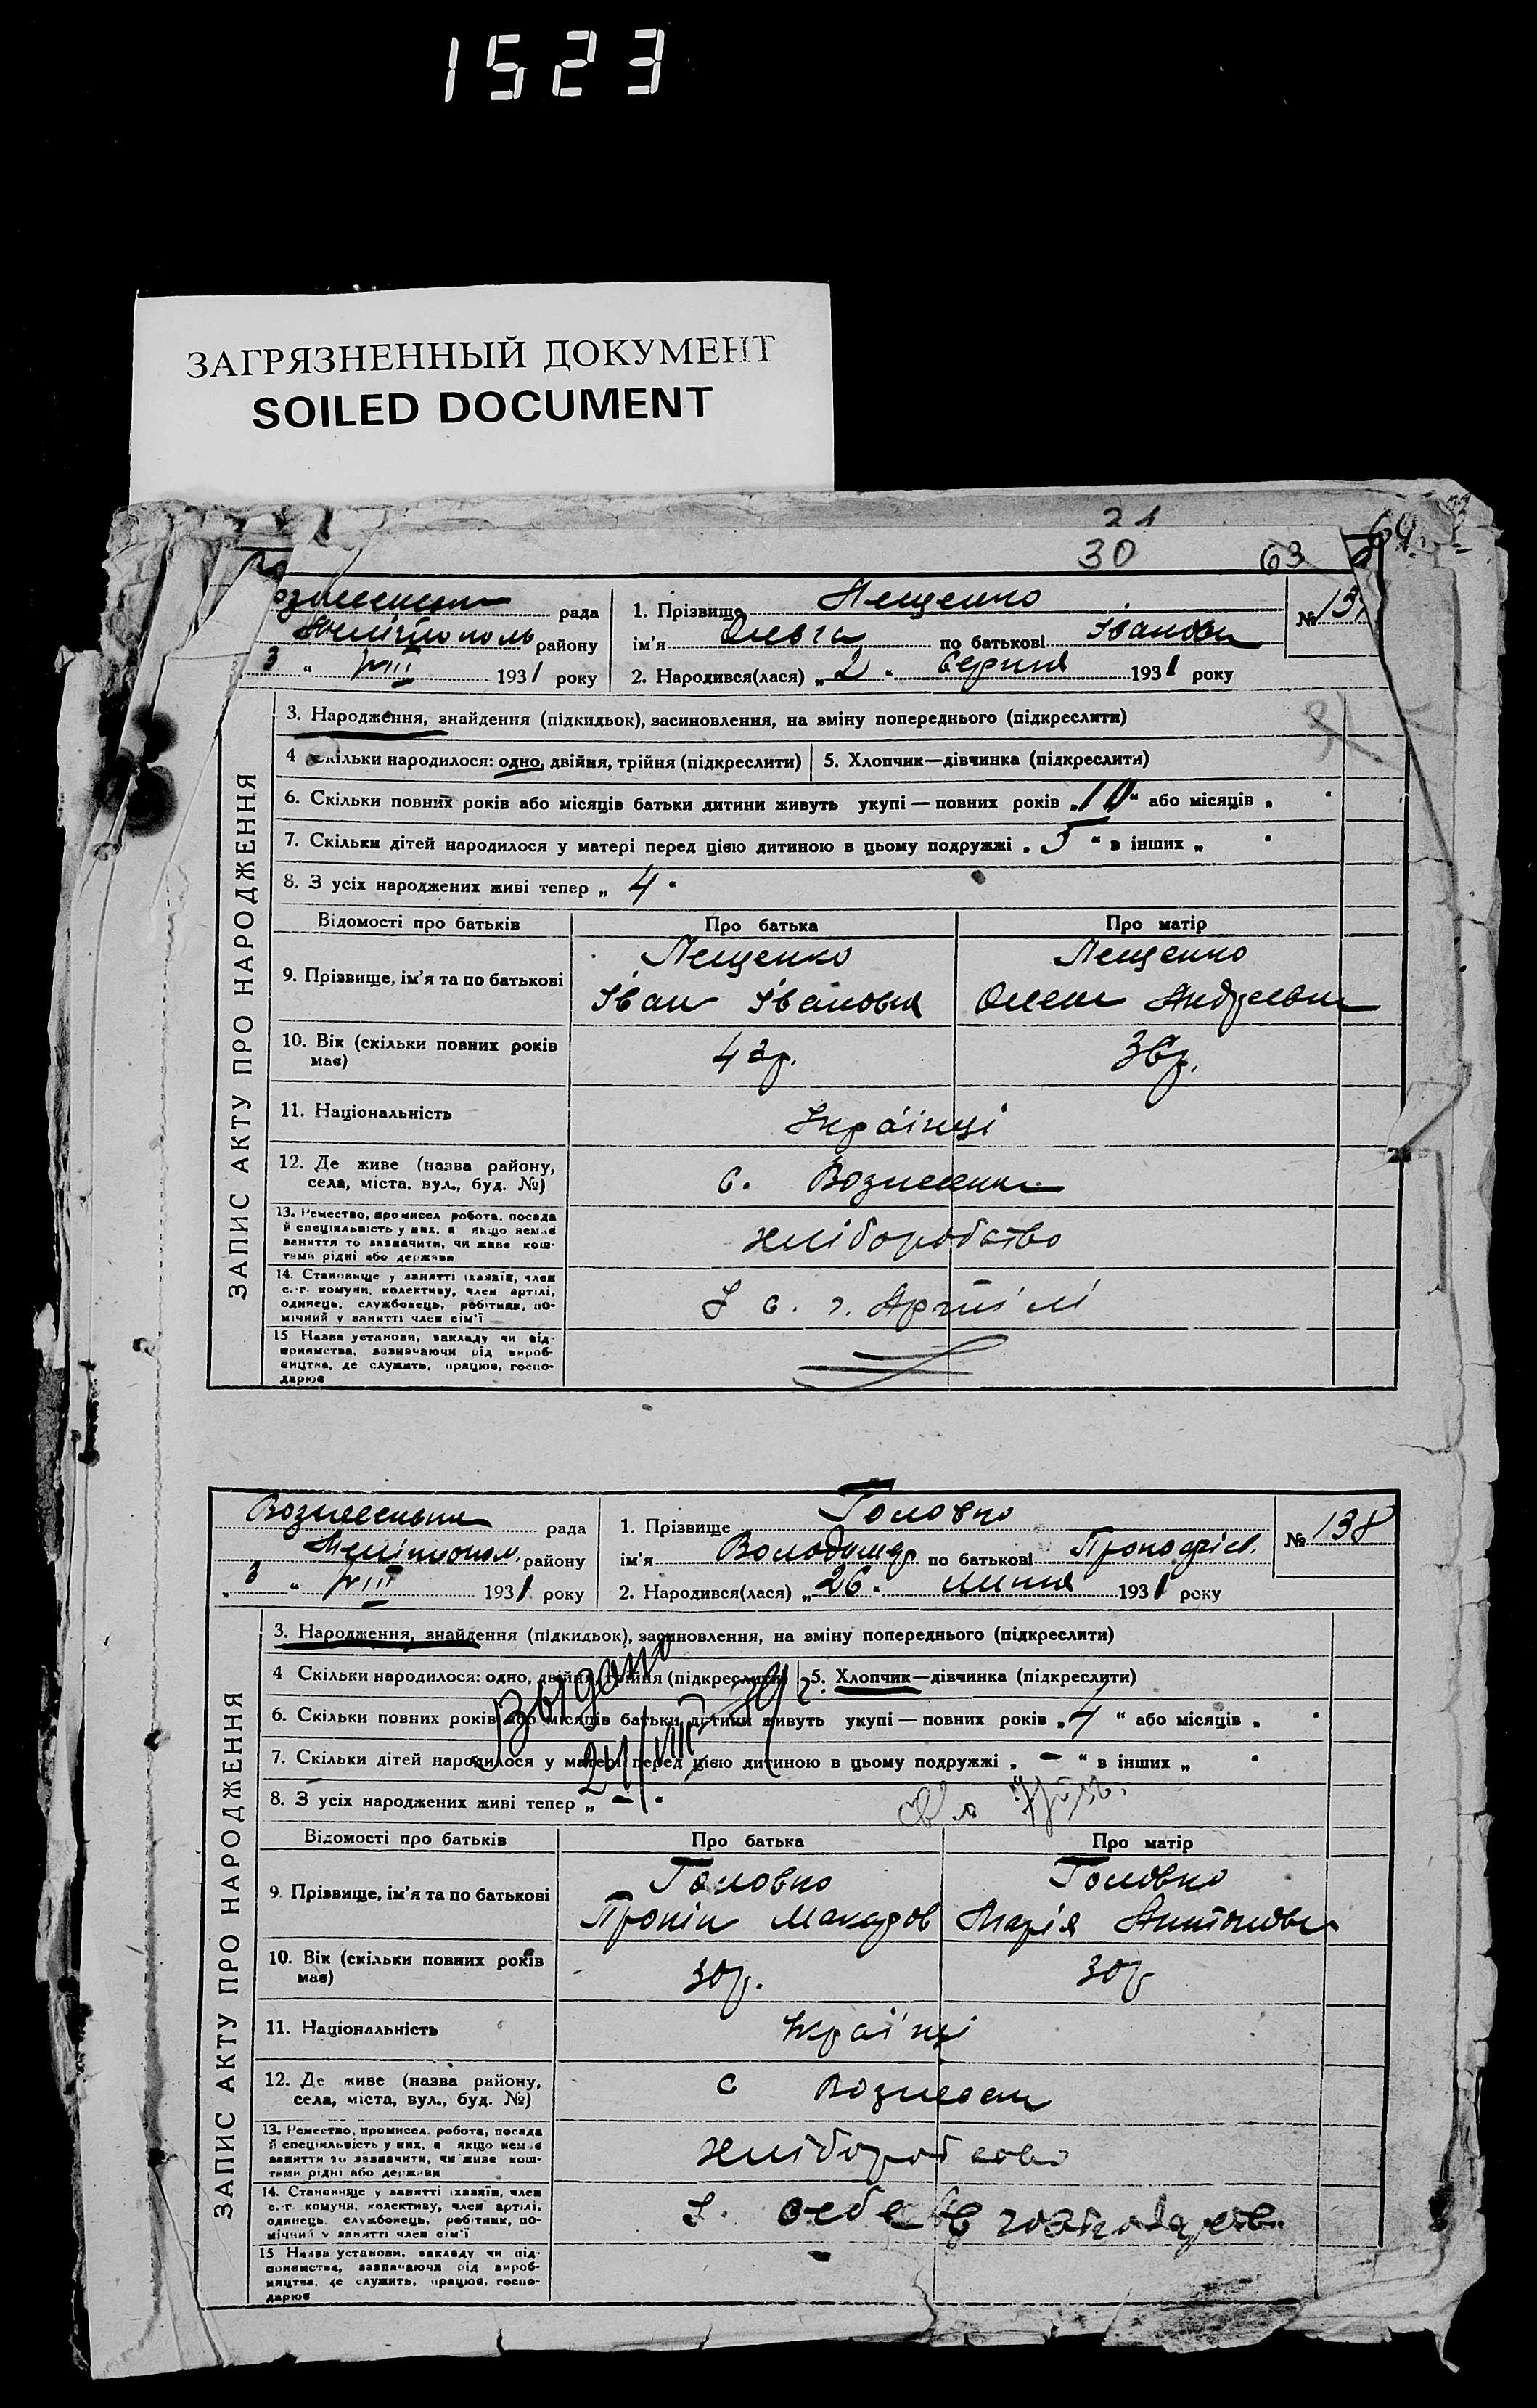 1523
ЗАГРЯЗНЕННЫЙ ДОКУМЕНТ
SOILED DOCUMENT
31
30 63 64
рада
району
3 " VIII 1931 року
1. Прізвище Лещенко
ім'я Ольга по батькові Іванови
2. Народився(лася) „2" серпня 1931 року
№ 137
ЗАПИС АКТУ ПРО НАРОДЖЕННЯ
3. Народження, знайдення (підкидьок), засиновлення, на зміну попереднього (підкреслити)
4 Скільки народилося: одно, двійня, трійня (підкреслити) 5. Хлопчик—дівчинка (підкреслити)
6. Скільки повних років або місяців батьки дитини живуть укупі — повних років „10" або місяців „ "
7. Скільки дітей народилося у матері перед цією дитиною в цьому подружжі „5" в інших „ "
8. З усіх народжених живі тепер „ 4 "
Відомості про батьків Про батька Про матір
9. Прізвище, ім'я та по батькові
Лещенко Лещенко
Іван Іванович Олена Андреевн
10. Вік (скільки повних років має)
42р. 36р.
11. Національність
Українці
12. Де живе (назва району,
села, міста, вул., буд. №)
с. Вознесенк
13. Ремество, промисел робота, посада
й спеціяльність у них, а якщо немає
заняття то зазначити, чи живе кош-
тами рідні або держави
хліборобство
14. Становище у занятті хазяїн, член
с.-г. комуни, колективу, член артілі,
одинець, службовець, робітник, по-
мічний у занятті член сім'ї
У с. г. Артілі
15 Назва установи, закладу чи під-
приємства, зазначаючи рід вироб-
ництва, де служить, працює, госпо-
дарює
Вознесенськ рада
Мелітопол. району
„ 3 " VIII 1931 року
1. Прізвище Головко
ім'я Володимир по батькові
2. Народився(лася) „26" липня 1931 року
№ 138
ЗАПИС АКТУ ПРО НАРОДЖЕННЯ
3. Народження, знайдення (підкидьок), засиновлення, на зміну попереднього (підкреслити)
4 Скільки народилося: одно, двійня, трійня (підкреслити) 5. Хлопчик—дівчинка (підкреслити)
6. Скільки повних років або місяців батьки дитини живуть укупі — повних років „4" або місяців „ "
7. Скільки дітей народилося у матері перед цією дитиною в цьому подружжі „ — " в інших „ "
8. З усіх народжених живі тепер „ — "
Выдано
24/VIII
Відомості про батьків Про батька Про матір
9. Прізвище, ім'я та по батькові
Головко Головко
Макаров Марія Антоновн
10. Вік (скільки повних років має)
30р. 30р
11. Національність
Українці
12. Де живе (назва району,
села, міста, вул., буд. №)
с Вознесен
13. Ремество, промисел, робота, посада
й спеціяльність у них, а якщо немає
заняття то зазначити, чи живе кош-
тами рідні або держави
хліборобство
14. Становище у занятті хазяїн, член
с.-г. комуни, колективу, член артілі,
одинець, службовець, робітник, по-
мічний у занятті член сім'ї
У себе в господарстві
15 Назва установи, закладу чи під-
приємства, зазначаючи рід вироб-
ництва, де служить, працює, госпо-
дарює